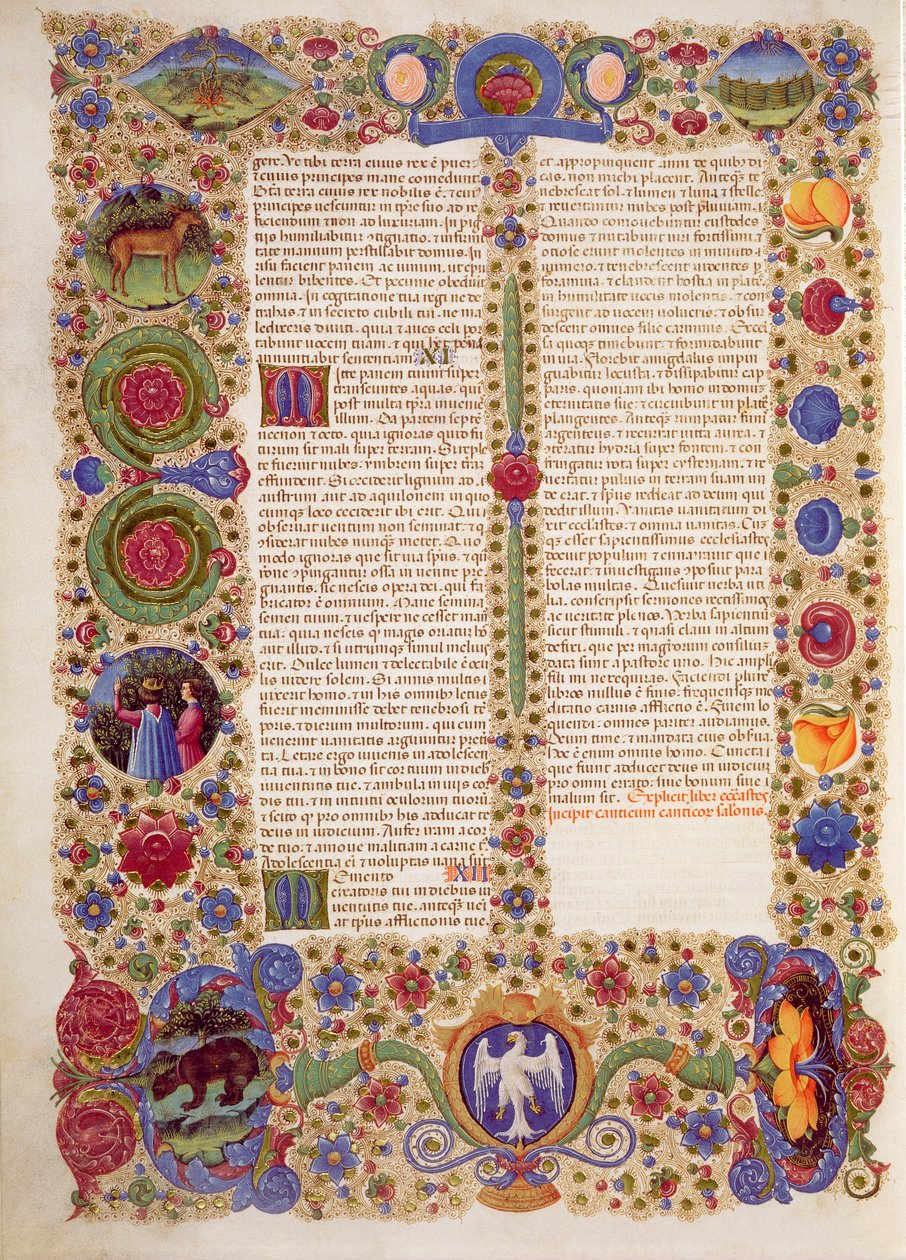 gere. Ve tibi terra cuius rex ē puer
⁊ cuius principes mane comedunt
Bta terra cuius rex nobilis ē. ⁊ cui
principes uescuntur in tp̄re suo ad re
ficiendum ⁊ non ad luxuriam. In pig
tijs humiliabitur ɔtignatio. ⁊ infirmi
tate manuum perstillabit domus. In
risu faciunt panem ac uinum. ut epu
lentur bibentes. Et pecunie obediunt
omnia. In cogitatione tua regi ne de
trahas. ⁊ in secreto cubili tui. ne ma
ledixeris diuiti. quia ⁊ aues celi por
tabunt uocem tuam. ⁊ qui hꝫ penā
annuntiabit sententiam. XI
Mitte panem tuum super
transeuntes aquas. quia
post multa tp̄ra inuenies
illum. Da partem septē
necnon ⁊ octo. quia ignoras quid fu
turum sit mali super terram. Si reple
te fuerint nubes. ymbrem super trā
effundent. Si ceciderit lignum ad
austrum aut ad aquilonem in quo
cumqꝫ loco ceciderit ibi erit. Qui
obseruat uentum non seminat. ⁊ q̄
ɔsiderat nubes nunquam metet. Quo
modo ignoras que sit uia sp̄us. ⁊ qua
rōne ɔpingantur ossa in uentre pre
gnantis. sic nescis opera dei. qui fa
bricator ē omnium. Mane semina
semen tuum. ⁊ uespere ne cesset ma
tua. quia nescis qͥ magis oriatur hoc
aut illud. ⁊ si utrumqꝫ simul melius
erit. Dulce lumen ⁊ delectabile ē ocu
lis uidere solem. Si annis multis
uixerit homo. ⁊ in his omnibꝰ letus
fuerit meminisse debet tenebrosi tē
poris. ⁊ dierum multorum. qui cum
uenerint uanitatis arguuntur preteri
ta. Letare ergo iuuenis in adolescen
tia tua. ⁊ in bono sit cor tuum in dieb
iuuentutis tue. ⁊ ambula in uijs cor
dis tui. ⁊ in intuitu oculorum tuorū
⁊ scito qꝫ pro omnibꝰ his adducat te
deus in iudicium. Aufer iram a cor
de tuo. ⁊ amoue malitiam a carne t
Adolescentia eī ⁊ uoluptas uana sūt
Memento XII
creatoris tui in diebus iu
uentutis tue. anteqꝫ ueni
at tp̄us afflictionis tue.
et appropinquent anni de quibꝰ di
cas. non michi placent. Anteqꝫ te
nebrescat sol. ⁊ lumen ⁊ luna ⁊ stelle
⁊ reuertantur nubes post pluuiam.
Quando cōmouebuntur custodes
domus ⁊ nutabunt uiri fortissimi. ⁊
otiose erunt molentes in minuto
numero. ⁊ tenebrescent uidentes ꝑ
foramina. ⁊ claudent hostia in platea
in humilitate uocis molentis. ⁊ con
surgent ad uocem uolucris. ⁊ obsur
descent omnes filie carminis. Excel
sa quoqꝫ timebunt. ⁊ formidabunt
in uia. Florebit amigdalus inpin
guabitur locusta. ⁊ dissipabitur cap
paris. quoniam ibit homo in domum
eternitatis sue. ⁊ circuibunt in platea
plangentes. Anteqꝫ rumpatur funi
argenteus. ⁊ recurrat uitta aurea. ⁊
ɔteratur hydria super fontem. ⁊ con
fringatur rota super cysternam. ⁊ re
uertatur puluis in terram suam un
de erat. ⁊ sp̄us redeat ad deum qui
dedit illum. Vanitas uanitatum di
xit ecclastes. ⁊ omnia uanitas. Cūqꝫ
esset sapientissimus ecclesiastes
docuit populum ⁊ enarrauit que
fecerat. ⁊ inuestigans ɔposuit para
bolas multas. Quesiuit uerba uti
lia. conscripsit sermones rectissimos
ac ueritate plenos. Verba sapientiū
sicut stimuli. ⁊ quasi claui in altum
defixi. que per magrorum consiliū
data sunt a pastore uno. His amplius
fili mi ne requiras. Faciendi plures
libros nullus ē finis. frequensqꝫ me
ditatio carnis afflictio ē. Finem lo
quendi. omnes pariter audiamus.
Deum time. ⁊ mandata eius obserua
hoc ē enim omnis homo. Cuncta
que fiunt adducet deus in iudicium
pro omni errato. siue bonum siue
malum sit. Explicit liber eccāstes
Incipit canticum canticor̄ salonis.